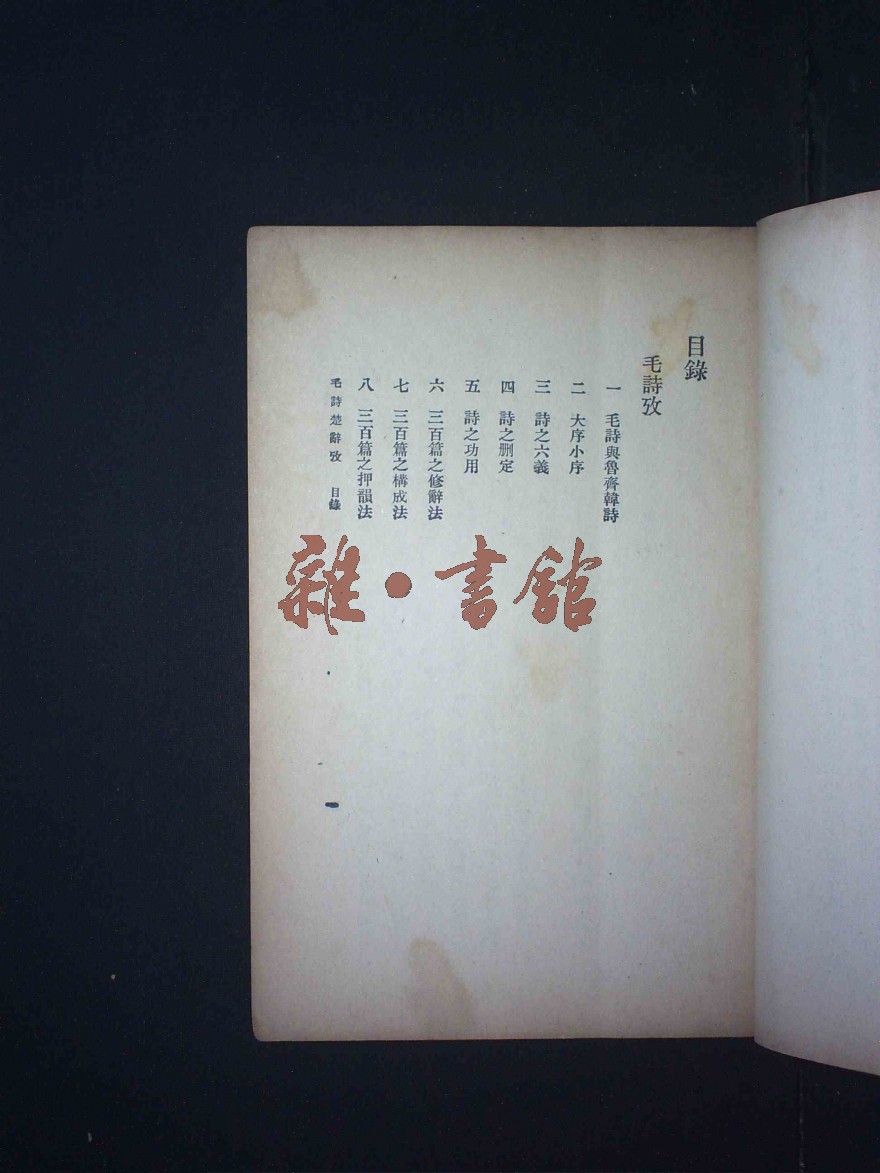 目錄
毛詩攷
一 毛詩與魯齊韓詩
二 大序小序
三 詩之六義
四 詩之删定
五 詩之功用
六 三百篇之修辭法
七 三百篇之構成法
八 三百篇之押韻法
毛詩楚辭攷 目錄 一
雜·書館